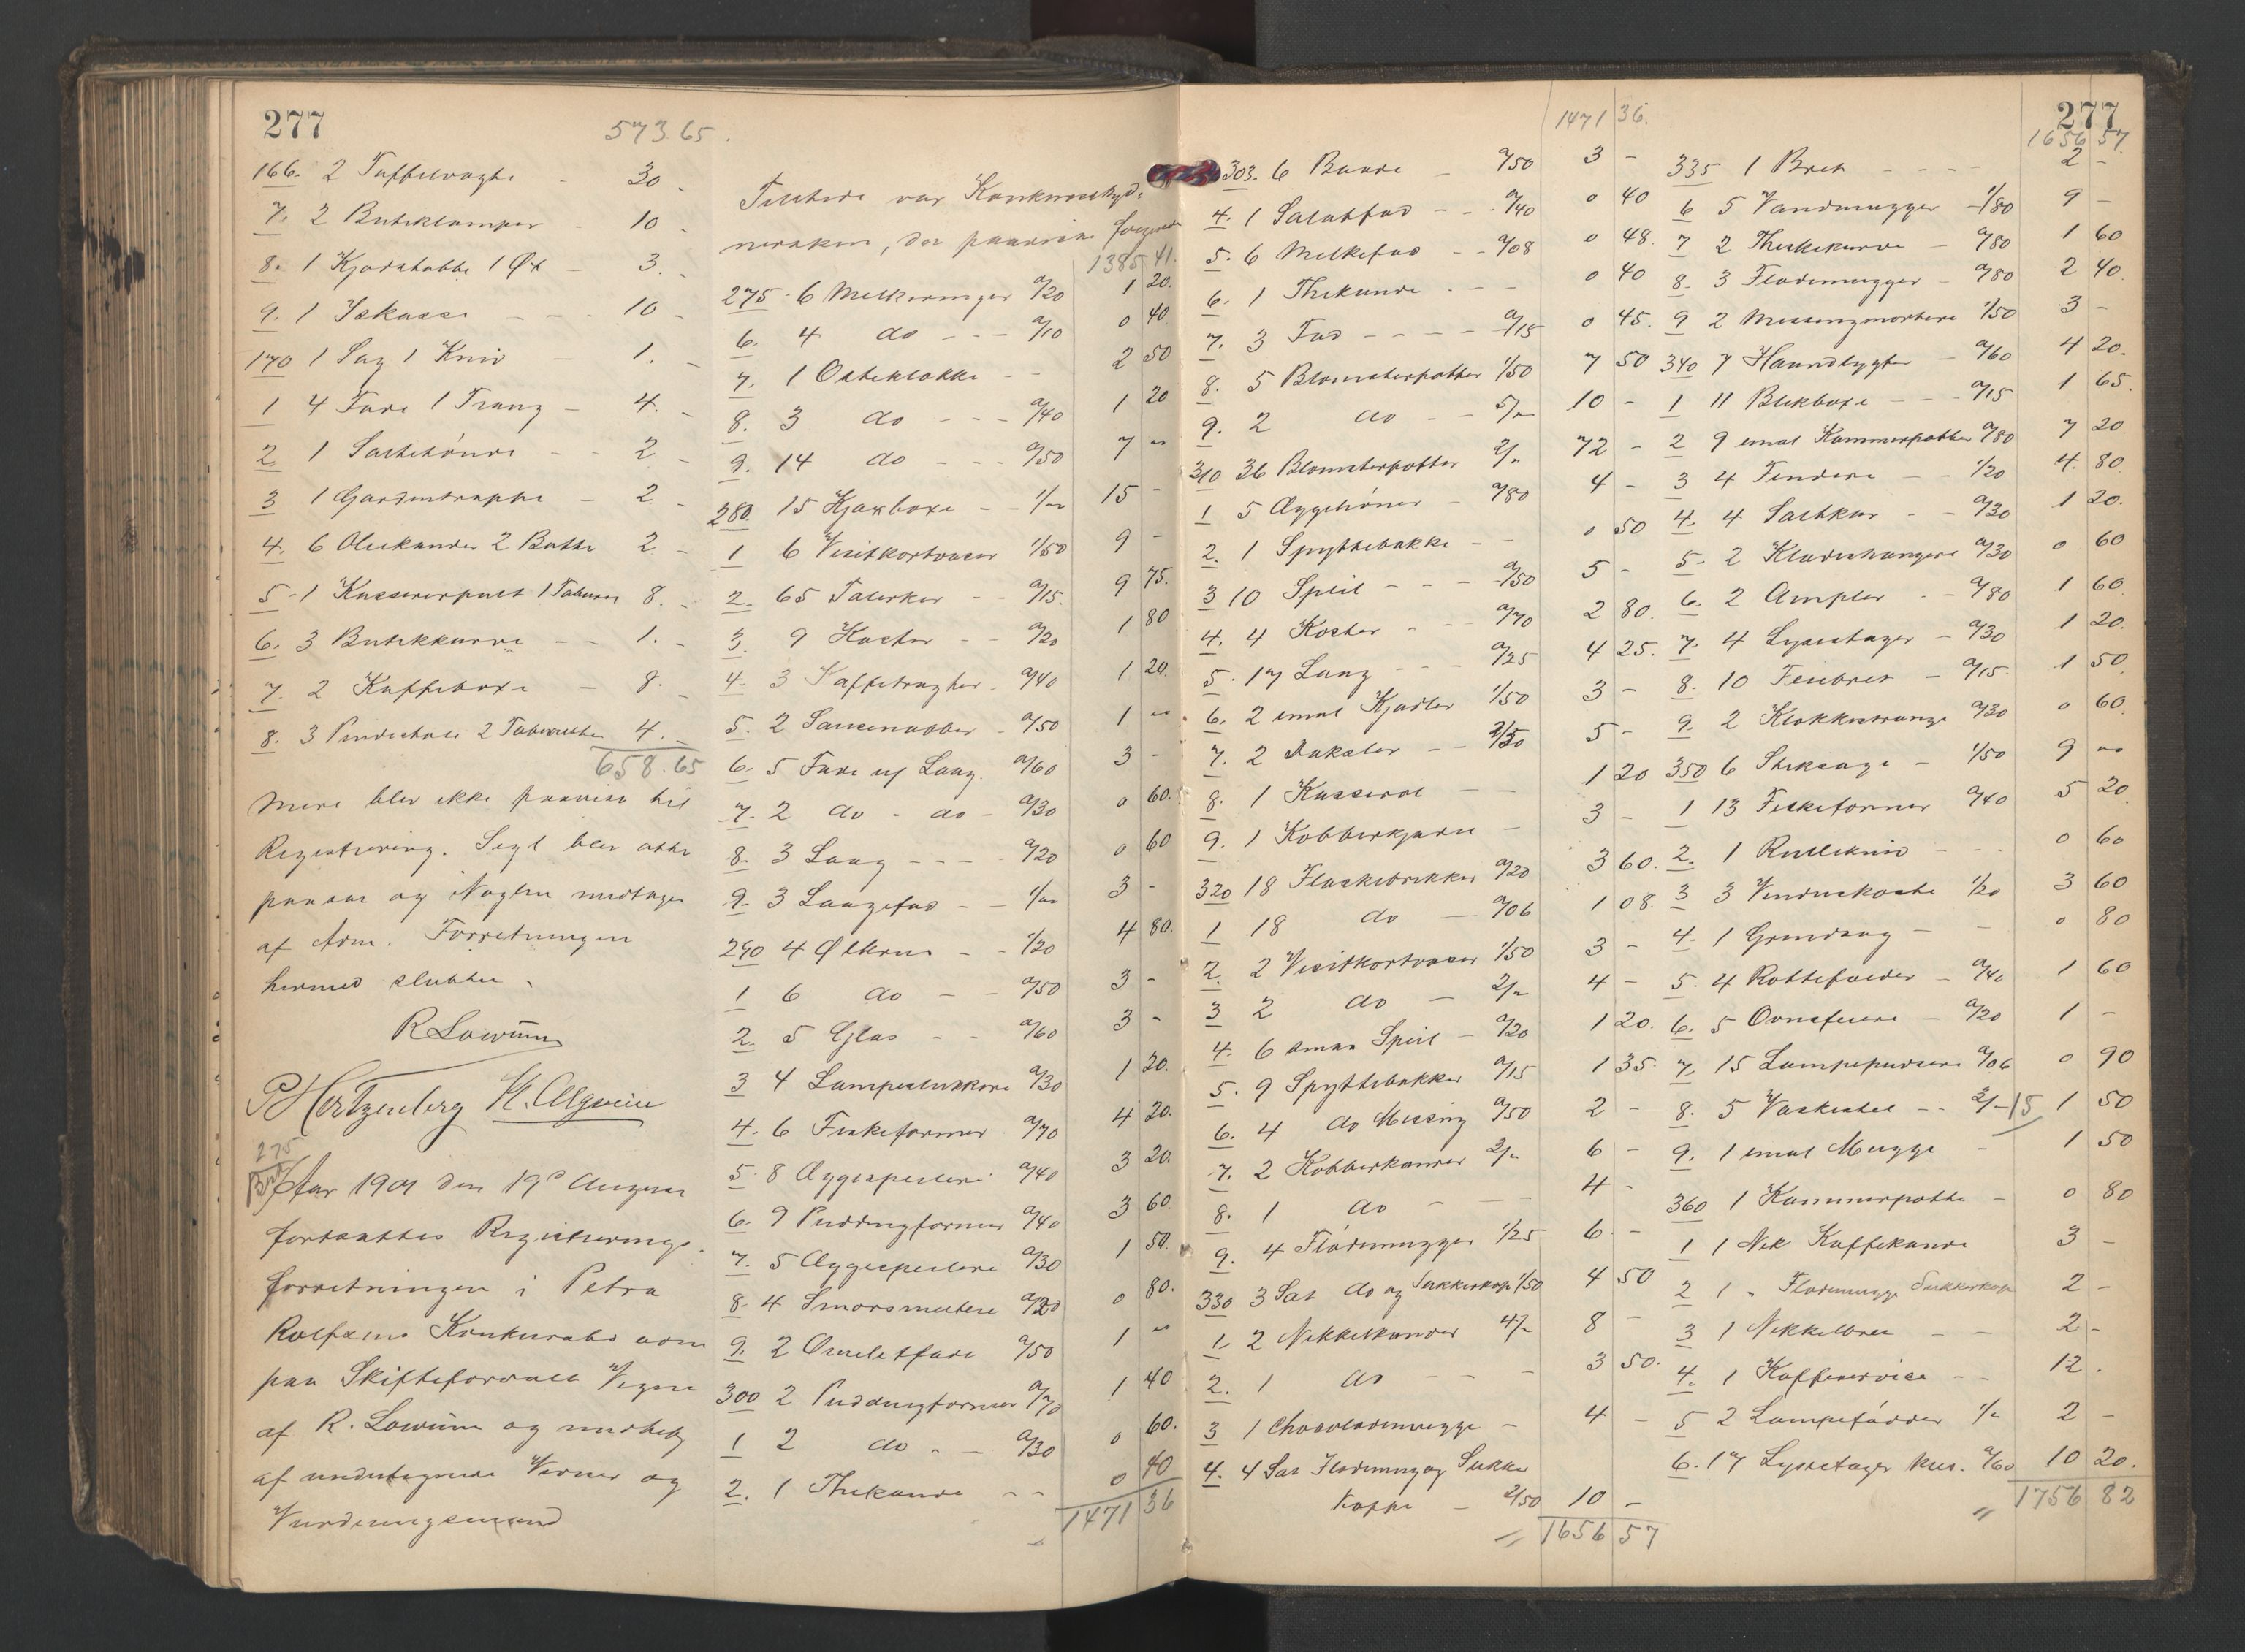 277
573.65.
166. 2 Taffelvægte - 30 -
7. 2 Butiklamper - 10 -
8. 1 Kjødstabbe 1 Øx - 3. -
9. 1 Iskasse - - 10 -
170 1 Sag 1 Kniv - 1. -
1 4 Fade 1 Trang - 4. -
2. 1 Saltetønde - - 2 -
3 1 Gardintrappe - 2 -
4. 6 Oliekander 2 Bøtte 2 -
5 - 1 Kassererpult 1 Taburet 8. -
6. 3 Butikkurve - - 1. -
7. 2 Kaffeboxe - 8. -
8. 3 Pindestole 2 Taburetter 4. -
658.65
Mere blev ikke paavist til
Registrering. Segl blev atter
paasat og Nøglen modtaget
af Adm. Forretningen
hermed sluttet.
R Lowum
P Hertzenberg
275
Aar 1901 den 19d August
fortsattes Registrerings-
forretningen i Petra
Rolfsens Konkursbo som
paa Skifteforvalt Vegne
af R. Lowum og medhelp
af undertegnede Vidner og
Vurderingsmænd
Tilstede var Konkursskyd-
nersken, der paaviste følgende
1385 41.
275 - 6 Melkeringer a/20 1 20.
6. 4 do - - a/10 0 40
7. 1 Osteklokke - - 2 50
8. 3 do - - a/40 1 20
9. 14 do - - - a/50 7 "
280. 15 Kjæxboxe - - 1/" 15 -
1 6 Visitkortvaser 1/50 9 -
2. 65 Talerker - - a/15. 9 75.
3. 9 Koster - - a/20 1 80
4. 3 Kaffetragter - a/40 1 20
5. 2 Sausenabber - a/50 1 "
6. 5 Fade m/ Laag. a/60 3 -
7. 2 do - do - a/30 0 60.
8. 3 Laag - - - a/20 0 60
9. 3 Laagefad - - 1/" 3 -
290 4 Ølkrus - - 1/20 4 80.
1 6 do - - a/50 3 -
2. 5 Glas - - a/60 3 -
3 4 Lampeslukkere a/30 1 20.
4. 6 Fiskeformer a/70 4 20.
5. 8 Æggespeilere a/40 3 20.
6. 9 Puddingformer a/40 3 60
7. 5 Æggespeilere a/30 1 50.
8. 4 Smørsmeltere a/20 0 80.
9. 2 Omeletfade a/50 1 "
300 2 Puddingformer a/70 1 40
1 2 do - - a/30 0 60.
2. 1 Thekande - - 0 40
1471 36
1471 36.
303. 6 Bande - a/50 3 -
4. 1 Salatfad - - - a/40 0 40
5. 6 Melkefad - - a/08 0 48.
6. 1 Thekande - - - 0 40
7. 3 Fad - - - - a/15 0 45.
8. 5 Blomsterpotter 1/50 7 50
9. 2 do - - 5/" 10 -
310 36 Blomsterpotter 2/" 72 -
1 5 Æggehøner - a/80 4 -
2. 1 Spyttebakke - - 0 50
3 10 Speil - - - a/50 5 -
4. 4 Koster - - - a/70 2 80.
5. 17 Laag - - - a/25 4 25.
6. 2 emal Kjedler 1/50 3 -
7. 2 Dukater - - 2/50 5 -
8. 1 Kasserol - - 1 20
9. 1 Kobberkjedel - 3 -
320 18 Flaskebrikker a/20 3 60.
1 18 do - a/06 1 08.
2. 2 Visitkortvaser 1/50 3 -
3 2 do - 2/" 4 -
4. 6 smaa Speil - a/20 1 20.
5. 9 Spyttebakker a/15 1 35.
6. 4 do Messing a/50 2 -
7. 2 Kobberkander 3/" 6 -
8. 1 do - - - 4 -
9. 4 Flødemugger 1/25 6 -
330 3 Sæt do og Sukkerkop 1/50 4 50
1. 2 Nikkelkander 4/" 8 -
2. 1 do - - - 3 50.
3 1 Chocolademugge - 4 -
4. 4 Sæt Flødemug og Sukker
Koppe - 2/50 10 -
1656 57
277
1656 57.
335 1 Bret - - - - 2 -
6 5 Vandmugger - 1/80 9 -
7 2 Theskekurve - a/80 1 60
8. 3 Flødemugger - a/80 2 40.
9 2 Messingmortere 1/50 3 -
340 7 Haandlygter - a/60 4 20.
1 11 Blikboxe - - - a/15 1 65.
2 9 emal Kammerpotter a/80 7 20
3 4 Tendere - - 1/20 4. 80.
4. 4 Saltkar - - a/30 1 20.
5. 2 Kladeshængere a/30 0 60
6. 2 Ampler - - a/80 1 60
7. 4 Lysestager - a/30 1 20.
8. 10 Tenbret - a/15. 1 50
9. 2 Klokkestrænge a/30 0 60.
350 6 Stiksage - 1/50 9 "
1 13 Fiskeformer a/40 5 20
2. 1 Rulleknive - - - 0 60
3 3 Vinduskoste 1/20 3 60
4. 1 Grundsag - - 0 80
5. 4 Rottefælder - a/40 1 60
6. 5 Ovnsfeiere - a/20 1 -
7. 15 Lampepudsere a/06 0 90
8. 5 Vaskestel - - 3/-15 1 50
9. 1 emal Mugge - 1 50
360 1 Kammerpotte - 0 80
1 1 Nik Kaffekande 3 -
2 1 " Flødemugge Sukkerkop 2 -
3 1 Nikkelbret - - 2 -
4. 1 Kaffeservice - - 12 .
5 2 Lampefødder 1/" 2 -
6. 17 Lysestager hus. a/60 10 20.
1756 82